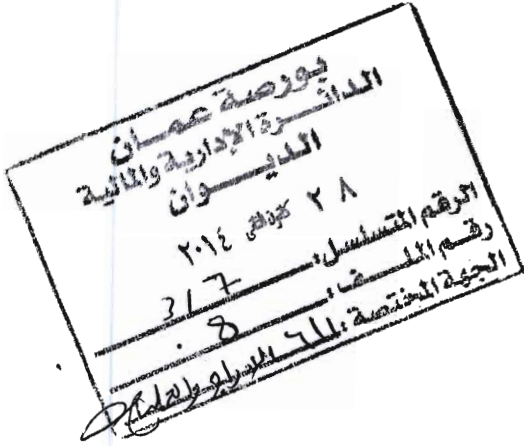 بورصة عمان
الدائرة الإدارية والمالية
الديوان
٢٨ ٢٠١٤
الرقم المتسلسل: 317
رقم الملف: 8
الجهة المختصة: